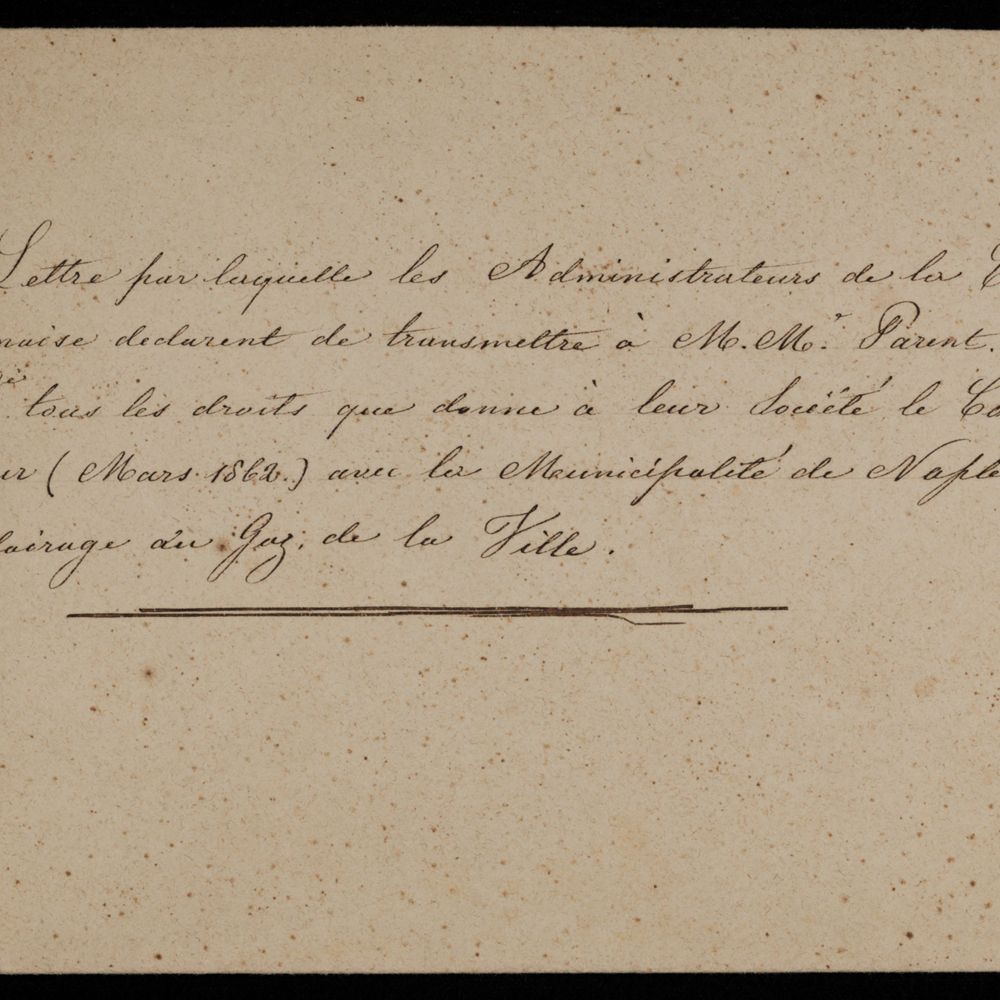 Lettre par laquelle les Administrateurs de la
naise declarent de transmettre à M. Mr. Parent.
tous les droits que donne à leur Société le
ur (Mars 1862.) avec la Municipalité de Naple
lairage du Gaz, de la Ville.